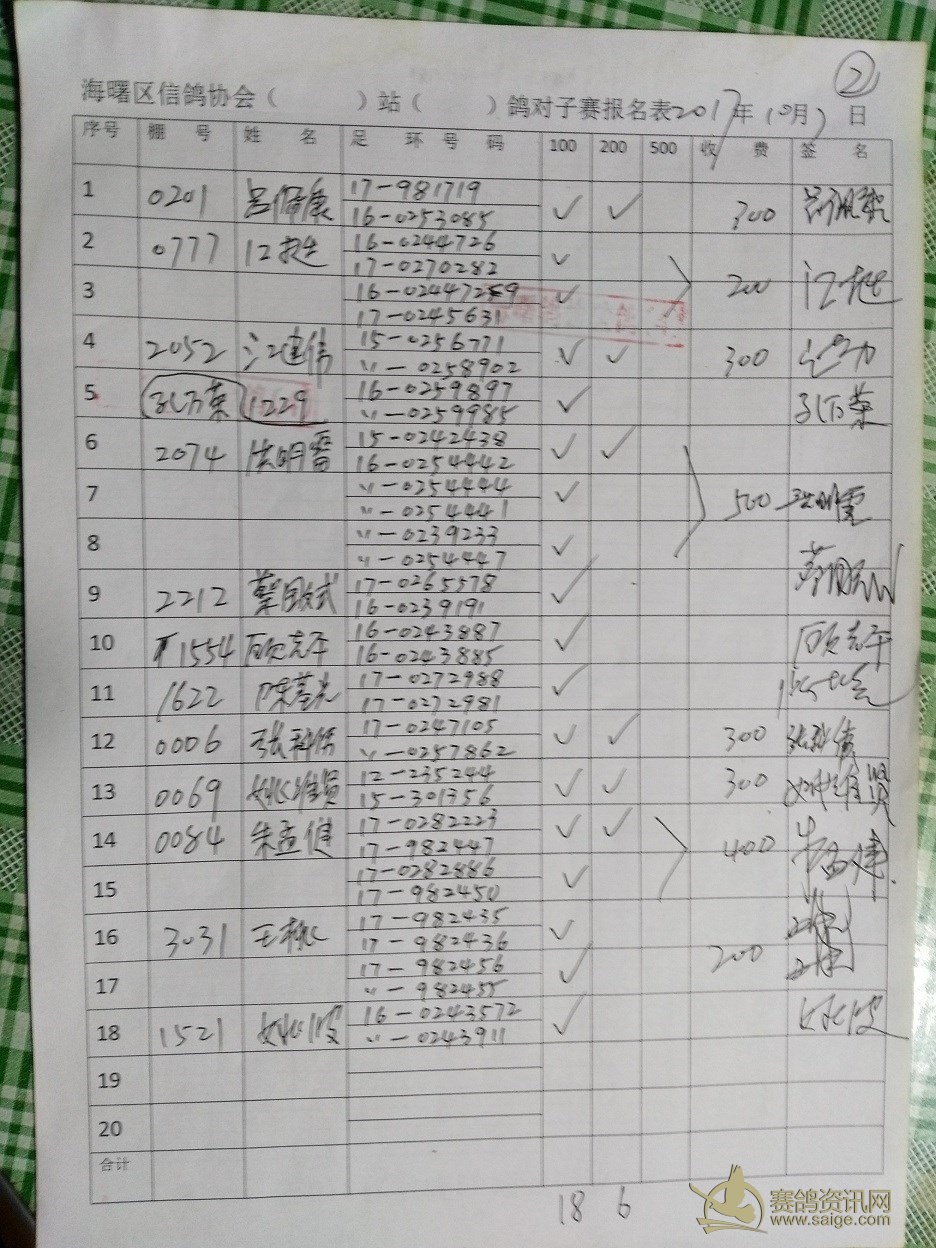 ②
海曙区信鸽协会（ ）站（ ）鸽对子赛报名表2017年10月 日
序号 棚 号 姓 名 足 环 号 码 100 200 500 收 费 签 名
1 0201 17-981719 ✓ ✓ 300
16-0253085
2 0777 江挺 16-0244726 ✓ 200 江挺
17-0270282
3 16-0244729 ✓
17-0245631
4 2052 江建伟 15-0256771 ✓ ✓ 300
〃-0258902
5 孔万荣 1229 16-0259897 ✓ 孔万荣
〃-0259985
6 2074 洪明雷 15-0242438 ✓ ✓ 500
16-0254442
7 〃-0254444 ✓
〃-0254441
8 〃-0239233 ✓
〃-0254447
9 2212 蔡国武 17-0265578 ✓
16-0239191
10 1554 顾克平 16-0243887 ✓ 顾克平
16-0243885
11 1622 陈基光 17-0272988 ✓
17-0272981
12 0006 张科伟 17-0247105 ✓ ✓ 300
〃-0257862
13 0069 姚维贤 12-235244 ✓ ✓ 300 姚维贤
15-301356
14 0084 朱孟健 17-0282223 ✓ ✓ 400 朱孟健
17-982447
15 17-0282886 ✓
17-982450
16 3031 17-982435 ✓ 200
17-982436
17 17-982456 ✓
〃-982455
18 1521 姚波 16-0243572 ✓ 姚波
〃-0243911
19
20
合计
18 6
赛鸽资讯网
www.saige.com